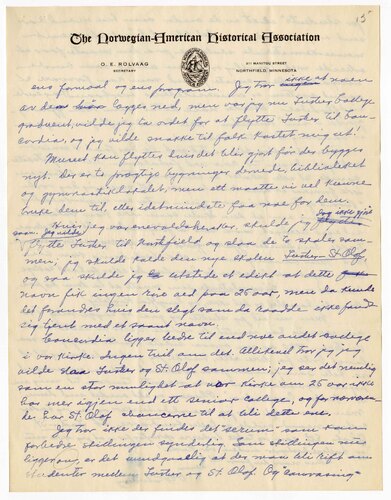 15
The Norwegian-American Historical Association
O. E. ROLVAAG
SECRETARY
811 MANITOU STREET
NORTHFIELD, MINNESOTA
ens formaal og ens program. Jeg tror ikke at noen
av dem bør lægges ned, men var jeg nu Luther College
graduent, vilde jeg ta ordet for at flytte Luther til Con-
cordia, og jeg vilde snakke til folk kastet mig ut!
Museet kan flyttes hvis det blir gjort før der bygges
nyt. Der er to prægtige bygninger dernede, biblioteket
og gymnastiklokalet, men ett maatte vi vel kunne
bruke dem til, eller idetmindste faa noe for dem.
Hvis jeg var enevoldshersker, skulde jeg
saa: jeg vilde flytte Luther til Northfield og slaa de to skoler sam-
men, jeg skulde kalde den nye skolen Luther-St. Olaf,
og saa skulde jeg utstede et edikt at dette
navn fik ingen røre ved paa 25 aar, men da kunde
det forandres hvis den slegt som da raadde ikke fandt
sig tjent med et saant navn.
Concordia ligger bedre til end noe andet college
i vor kirke. Ingen tvil om det. Allikevel tror jeg jeg
vilde slaa Luther og St. Olaf sammen; jeg ser det nemlig
som en stor mulighet at vor kirke om 25 aar ikke
har mer igjen end ett senior college, og for nærværen-
de har St. Olaf chancerne til at bli dette ene.
Jeg tror ikke der findes det "serum" som kan
forlede stillingen synderlig. Som stillingen nu
ligger an, er det uundgaaelig at der maa bli rift om
studenter mellem Luther og St. Olaf. Og "canvassing"